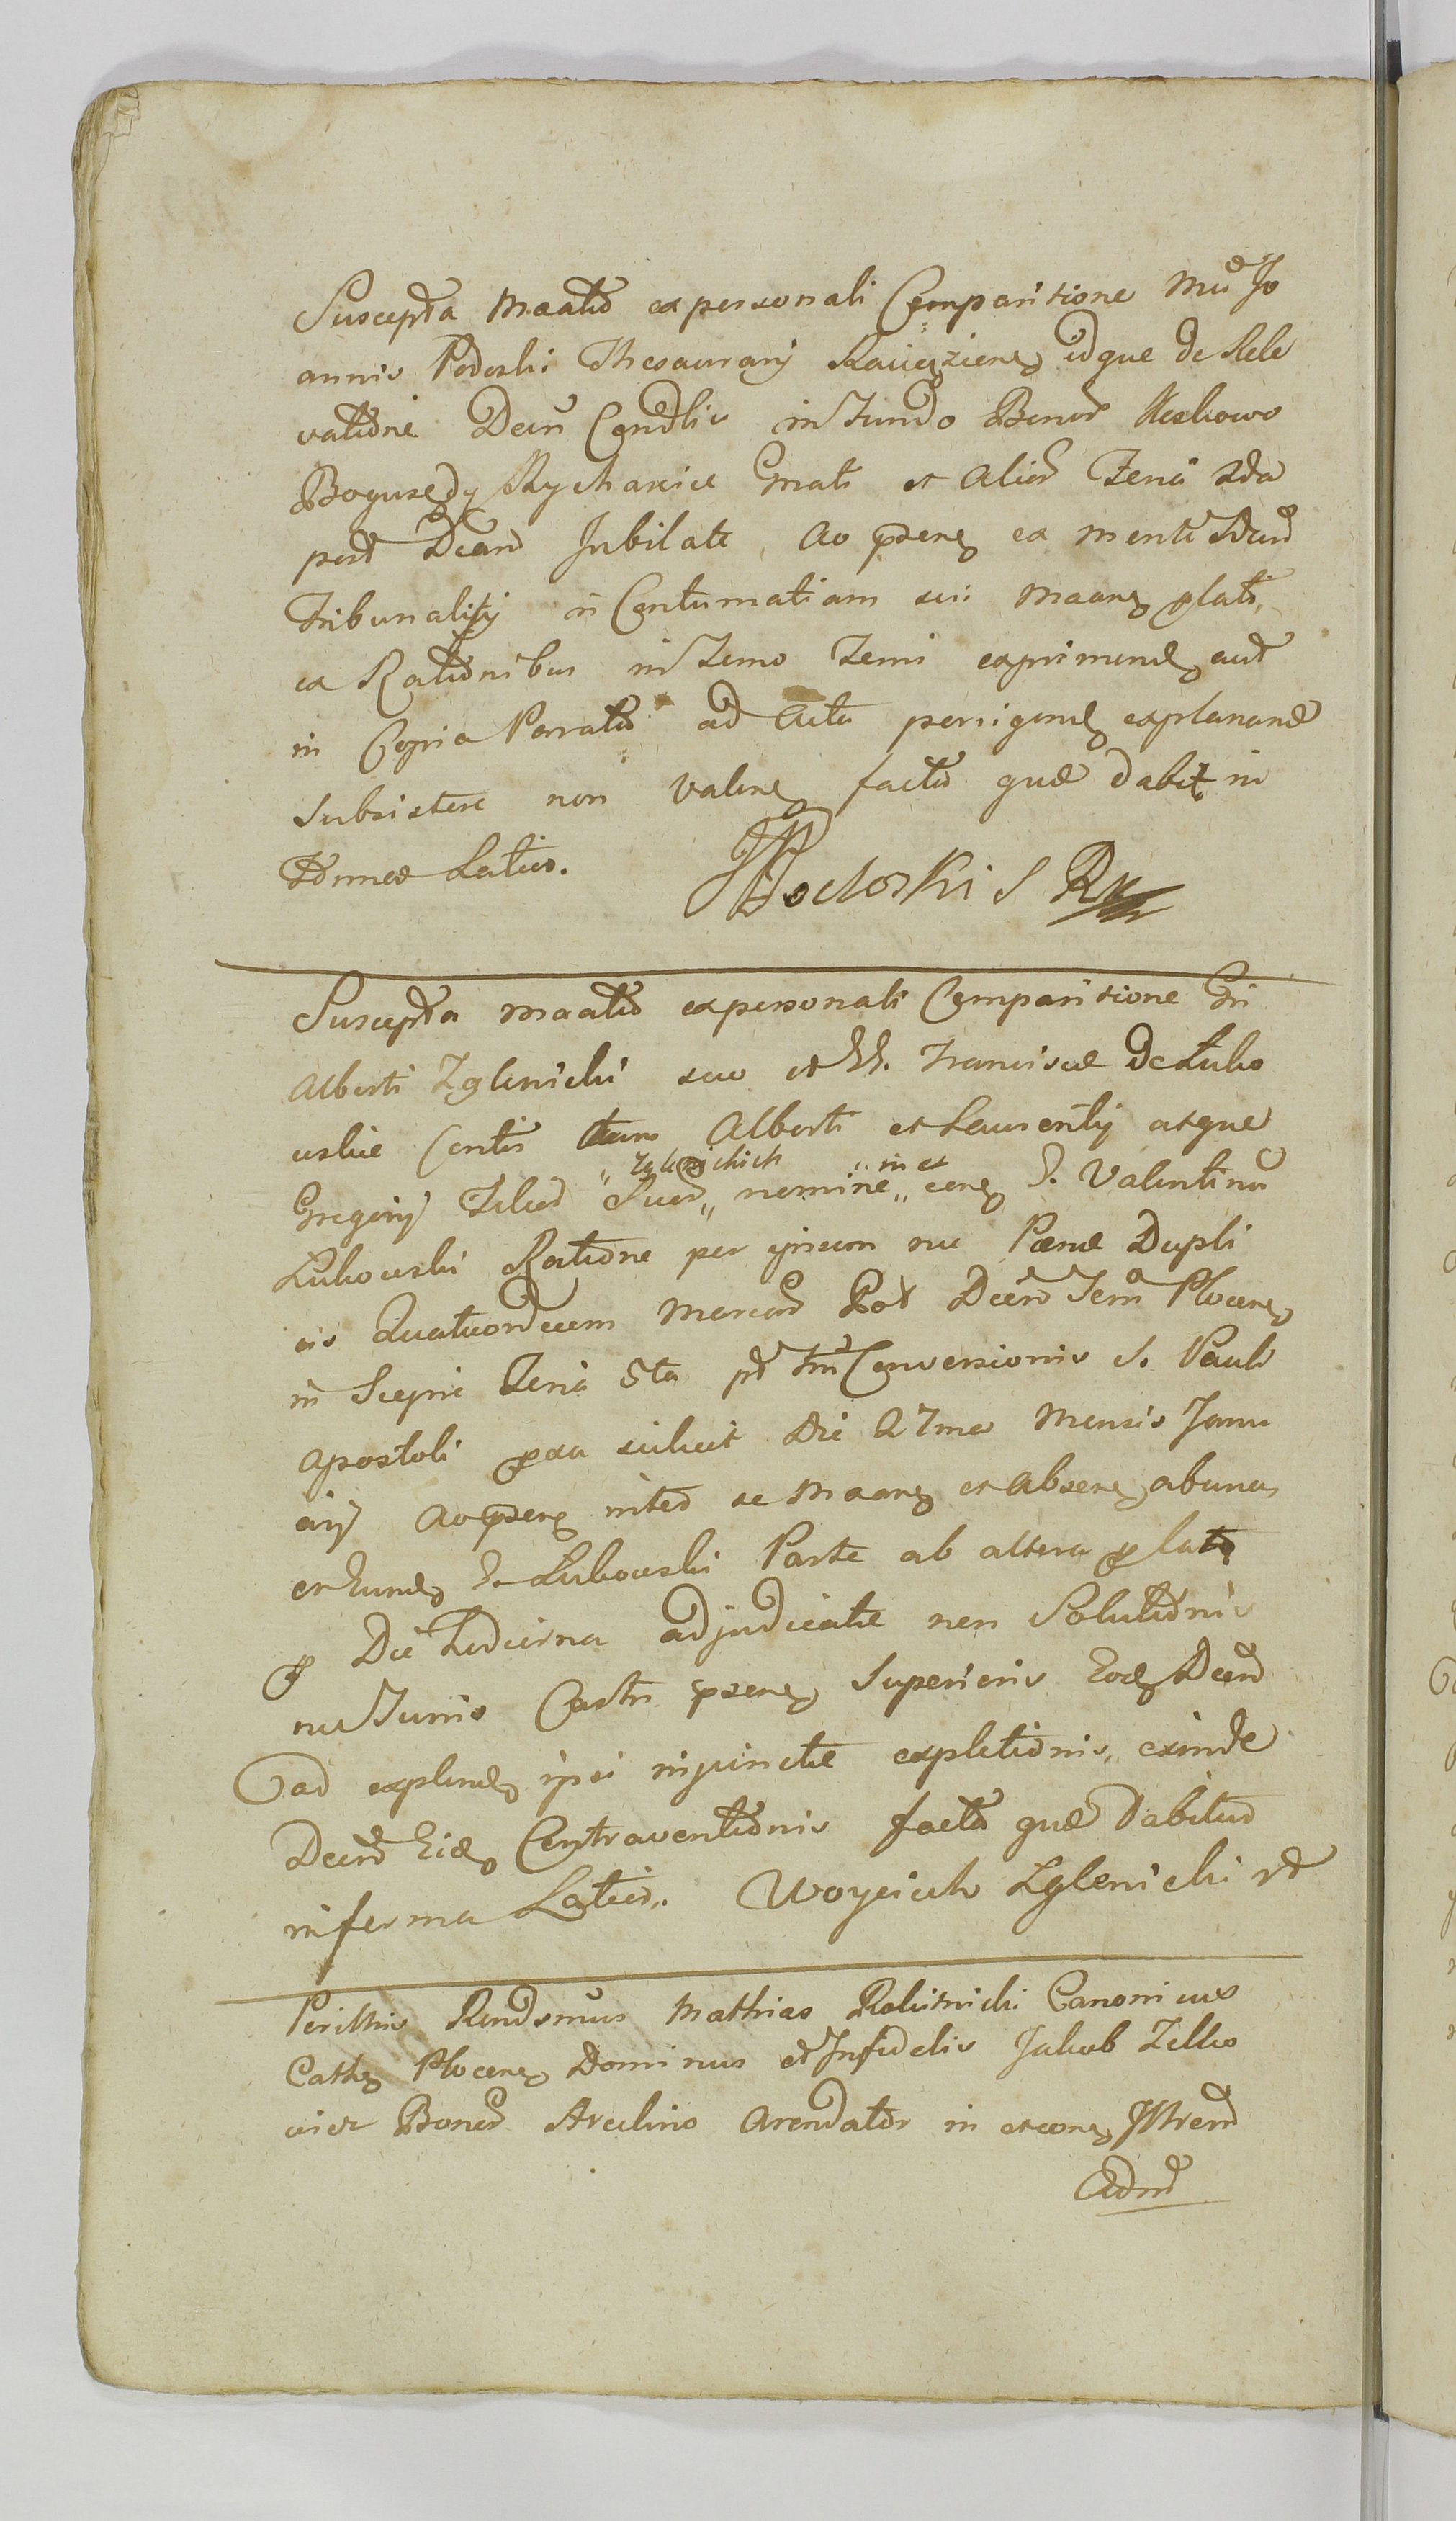 Suscepta Maatio ex personali Comparitione Mci Jo
annis Podoski Thesaurarij Raciążienz idque de Rele
vatione Decri Condlis in Fundo Bonor
Boguszędy Rychanice Gnati et alior Feria 2da
post Dcam Jubilate Ao psenz ex mente
Tribunalitij in Contumatiam sui Maanz plati
ex Rationibus in Termo Termi exprimend aut
in Copia Paratio ad Acta porrigend explanand
subsistere non valenz facta quæ dabit in
Forma Latius. JPodoski S R
Suscepta Maatio ex personali Comparitione Gsi
Alberti Zglenicki suo et GG. Franciscæ de Lubo
uskie Contis Alberti et Laurentij atque
Gregorij Filior Suor „ Zglenickich nomine „ in et conz G. Valentinu
Lukouski Ratione per ipsum nu Pænæ Dupli
cis Quatuordecem Marcar Pol Decro Terri Plocenz
in Sierpic Feria 5ta pt Fm Conversionis S. Pauli
Apostoli pxa scilicet Die 27ma Mensis Janu
arij Ao psenz inter se Maanz et Absenz ab una
et Eund G. Lukouski Parte ab altera plato
p Die Hodierna adjudicatæ non Solutionis
nu Turris Castri psenz Superioris Eod Decro
ad explend ipsi injunctæ expletionis, exinde
Decro Eid Contraventionis facta quæ Dabitur
in forma Latius. Woyciech Zglenicki
Perillris Rendsmus Mathias Canonicus
Cath Plocenz Dominus et Infidelis Jakub Zelko
wicz Bonor Arendator in et conz
Admd